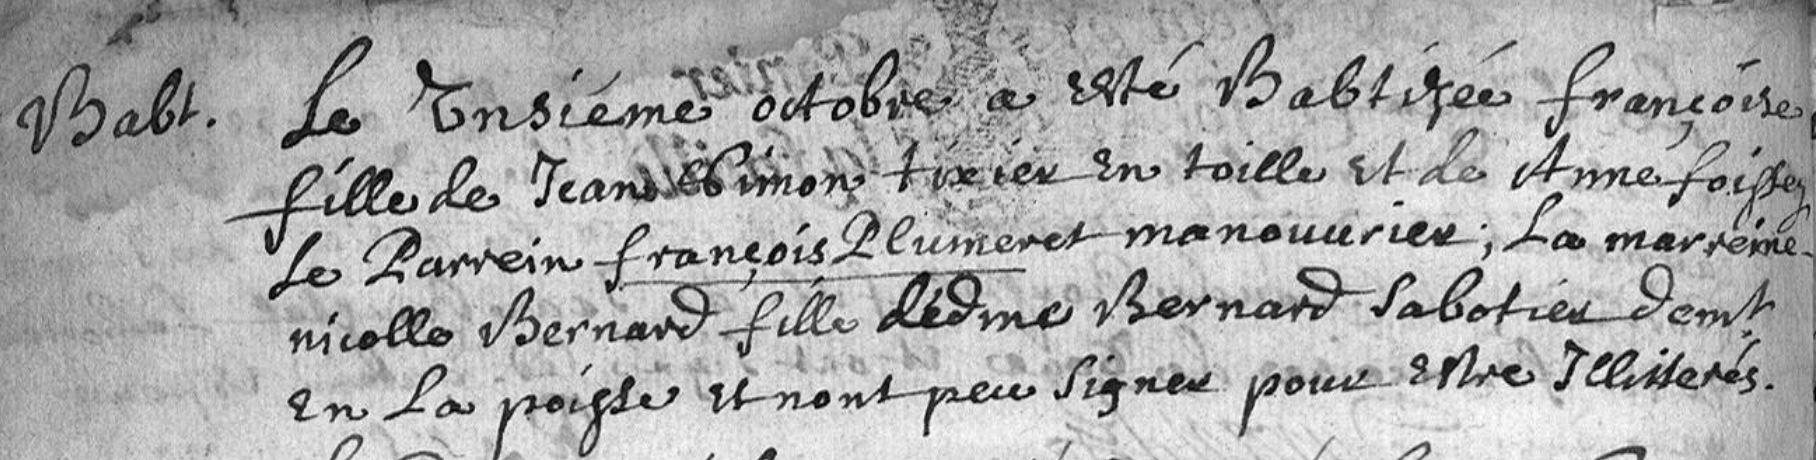 Babt. Le Unsiéme octobre a Esté Babtizéé françoise
fille de Jean Simon tixier En toille Et de Anne foissey
Le Parrein françois Plumeret manouurier; La marreine
nicolle Bernard fille dédme Bernard Sabotier demt.
En La poisse Et nont peu Signer pour Estre Illitterés.